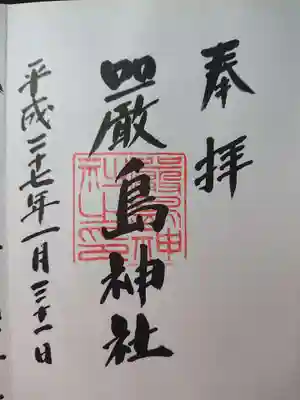 奉拝
嚴島神社
平成二十七年一月三十一日
嚴島神
社之印